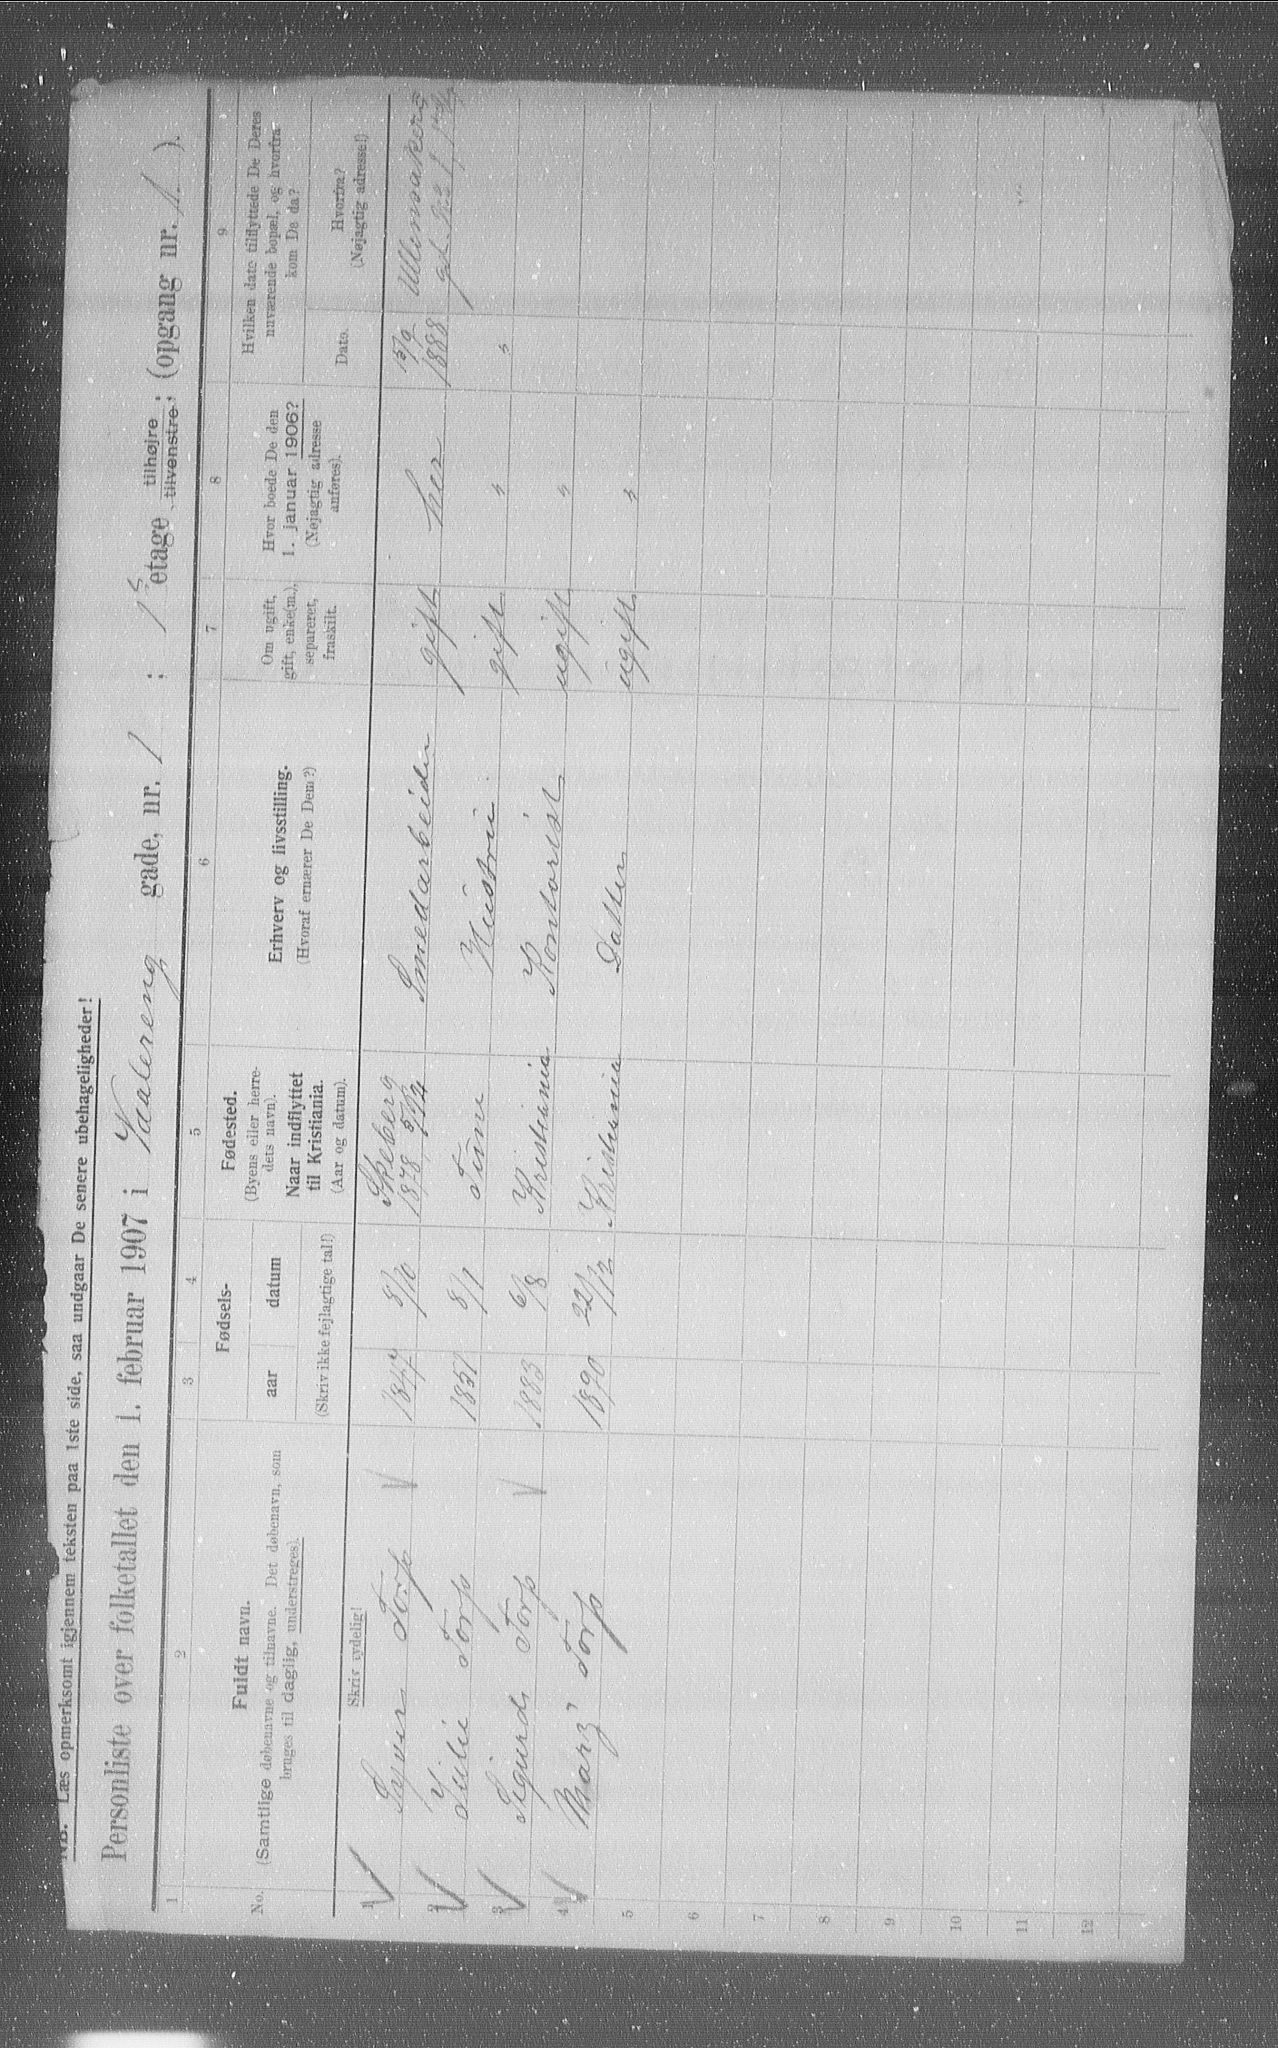 NB. Læs opmerksomt igjennem teksten paa 1ste side, saa undgaar De senere ubehageligheder!
Personliste over folketallet den 1. februar 1907 i Vaalereng gade, nr. 1 ; 1 etage tilhøjre tilvenstre, (opgang nr. 1. ).
1 2 3 4 5 6 7 8 9
No.
Fuldt navn.
(Samtlige døbenavne og tilnavne. Det døbenavn, som
bruges til daglig, understreges).
Skriv tydelig!
Fødsels-
aar datum
(Skriv ikke fejlagtige tal!)
Fødested.
(Byens eller herre-
dets navn).
Naar indflyttet
til Kristiania.
(Aar og datum).
Erhverv og livsstilling.
(Hvoraf ernærer De Dem?)
Om ugift,
gift, enke(m.),
separeret,
fraskilt.
Hvor boede De den
1. januar 1906?
(Nøjagtig adresse
anføres).
Hvilken dato tilflyttede De Deres
nuværende bopæl, og hvorfra
kom De da?
Dato.
Hvorfra?
(Nøjagtig adresse!)
1 Syver Torp 1847 8/10 Skeberg 1878 5/4 Smedarbeider gift her 15/9 1888
2 Julie Torp 1851 8/1 Time Hustru gift " "
3 Sigurd Torp 1883 6/8 Kristiania Kontorist ugift "
4 Mary Torp 1890 22/12 Kristiania Datter ugift "
5
6
7
8
9
10
11
12